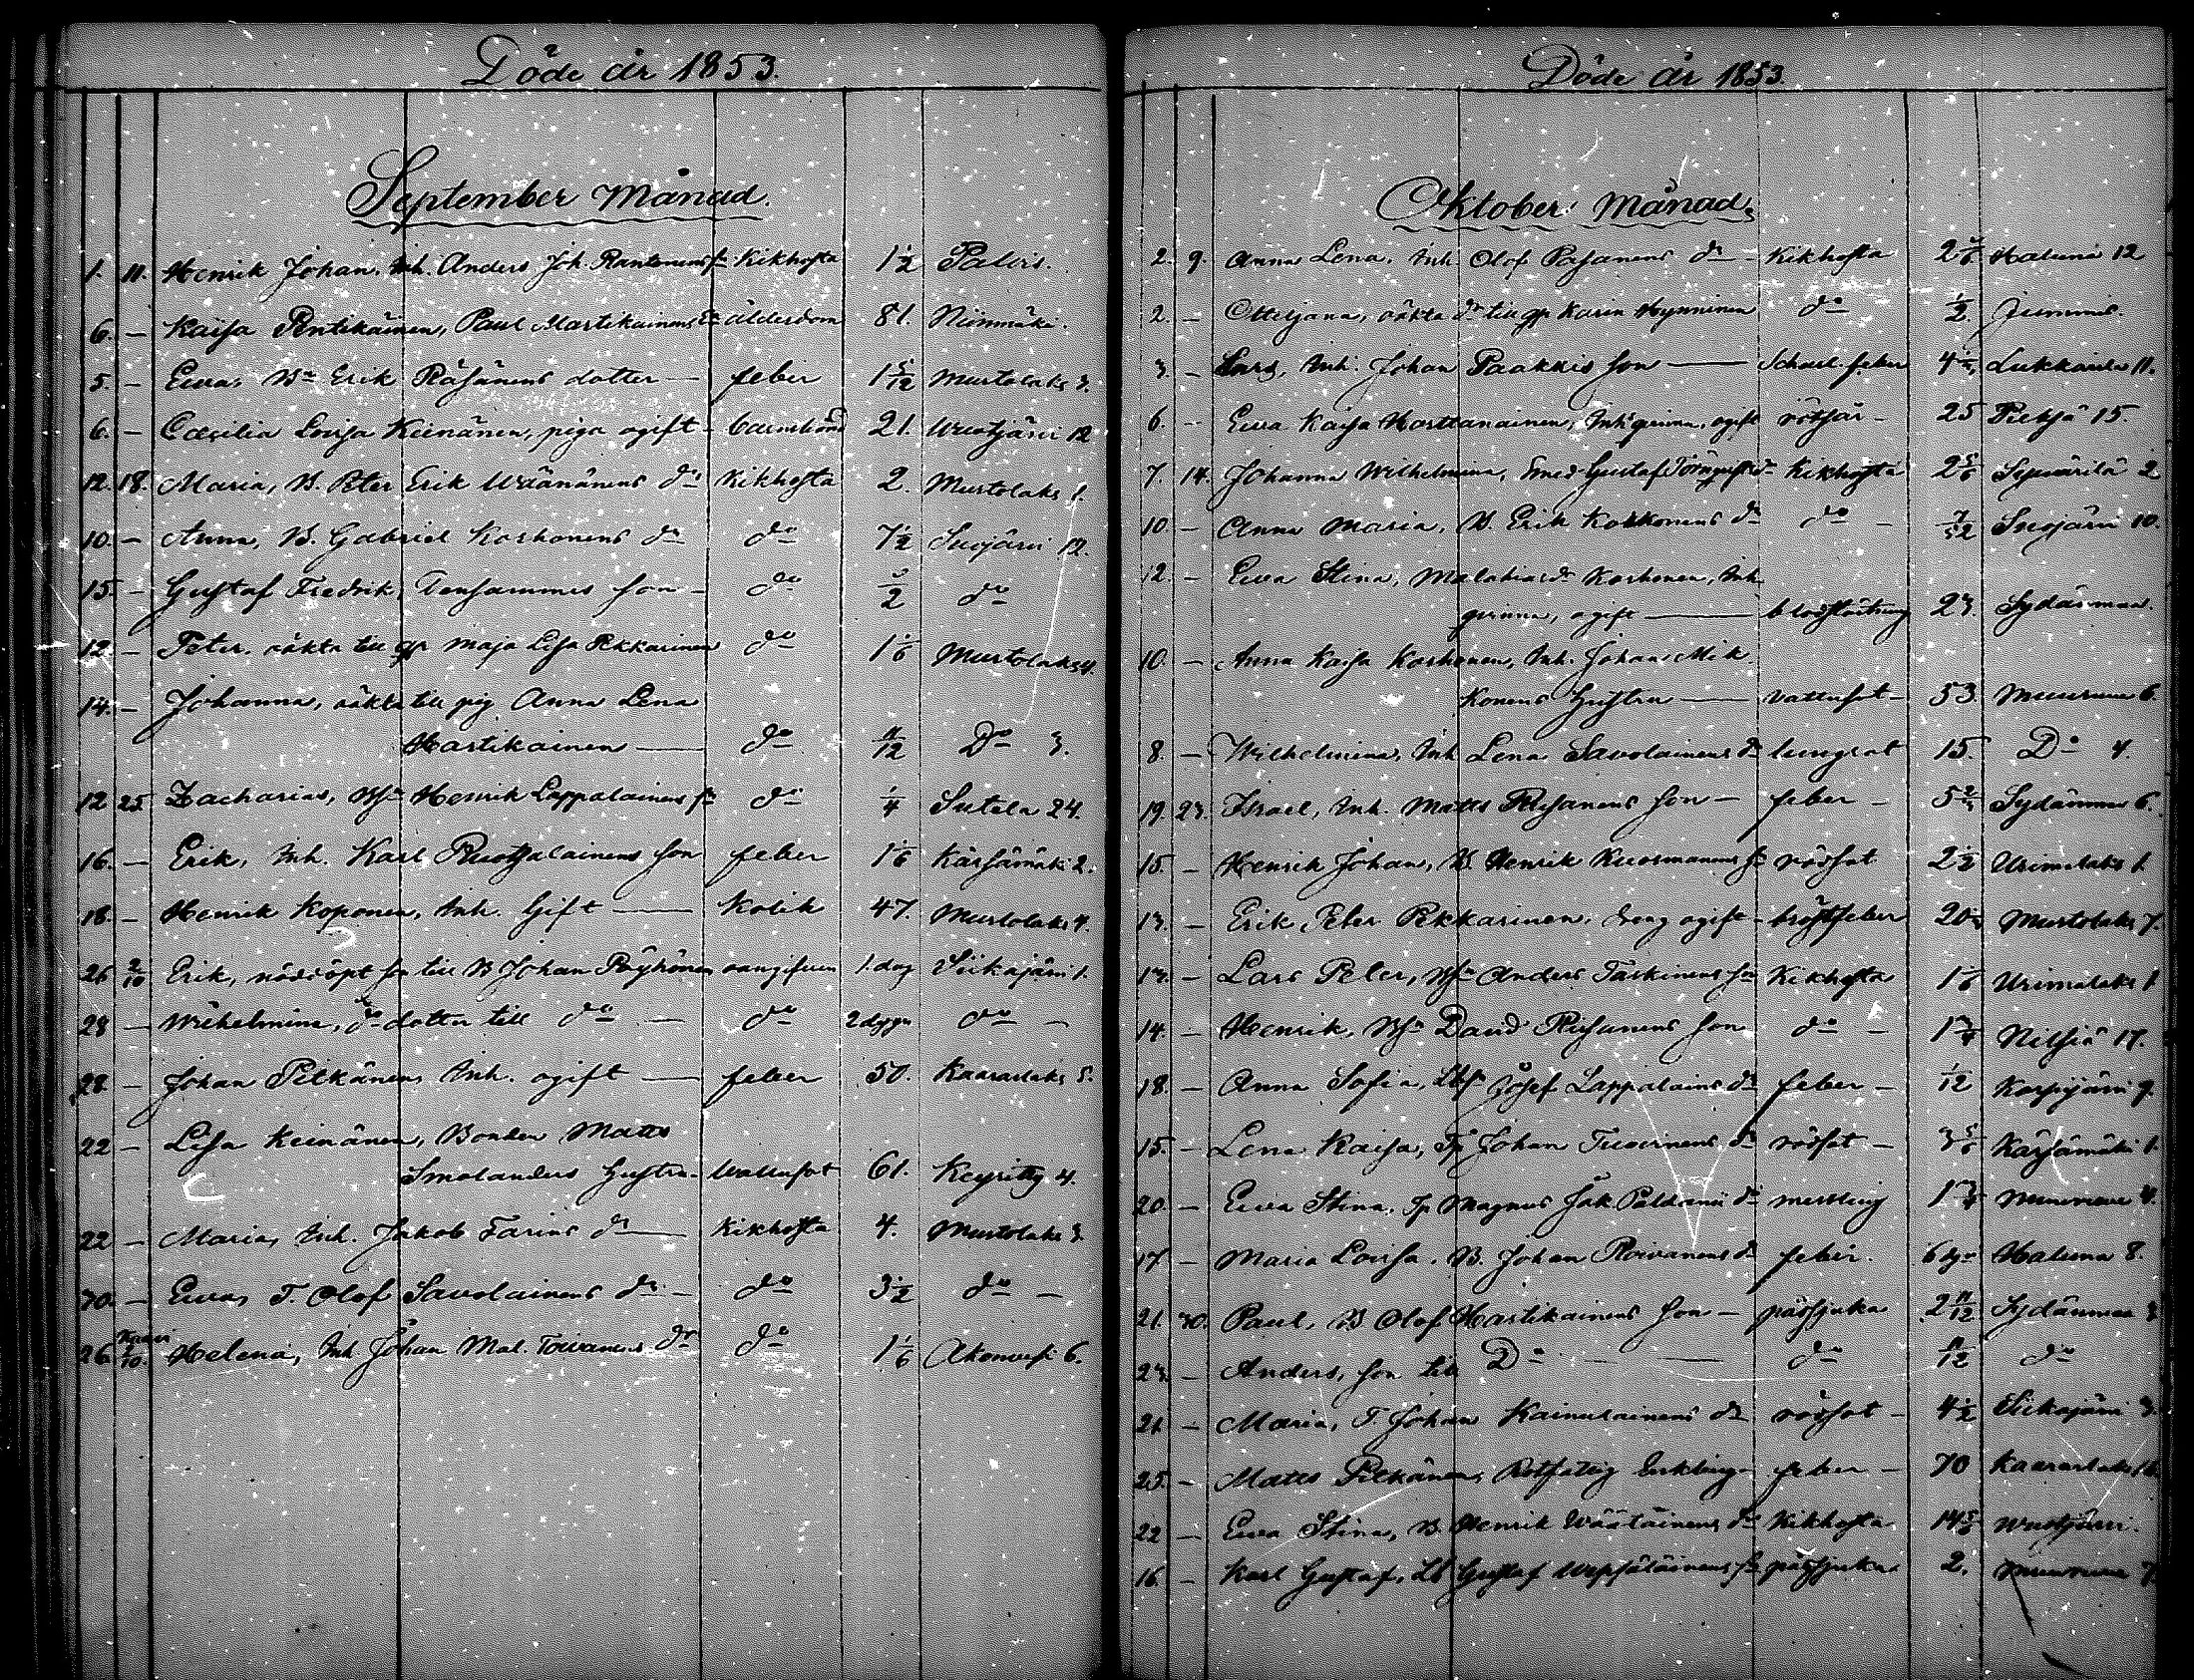 Döde år 1853.
September Månad.
1. 11. Henrik Johan, Inh. Anders Joh. Rantonens sn Kikhosta 1 1/2 Palois.
6. — Kaisa Pentikäinen, Paul Martikainens Ea ålderdom 81. Niinimäki.
5. — Ewa, Bn Erik Räsänens dotter — feber 1 5/12 Murtolaks 3.
6. — Cæcilia Lovisa Keinänen, piga ogift — barnsbörd 21. Wuotjärvi 12
12. 18. Maria, B. Peter Erik Wäänänens dr Kikhosta 2. Murtolaks 1.
10. — Anna, B. Gabriel Korhonens dr do 7 1/2 Suojärvi 12.
15. — Gustaf Fredrik, Densammes son — do 1/2 do
12. — Peter, oäkta till qp Maja Lisa Pekkarinen do 1 1/6 Murtolaks 4.
14. — Johanna, oäkta till pig Anna Lena
Hartikainen — do 11/12 Do 3.
12 25 Zacharias, Bsn Henrik Lappalainens sn do 1/4 Sutela 24.
16. — Erik, Inh. Karl Ruotsalainens son feber 1 1/6 Kärsämäki 2.
18. — Henrik Koponen, Inh. Gift — Kolik 47. Murtolaks 4.
26 2/10 Erik, nöddöpt son till B Johan Pöyhönen oangifven 1. dag Siikajärvi 1.
28 — Wilhelmina, do dotter till do — do 2 dygn do —
23. — Johan Pitkänen, Inh. ogift — feber 50. Kaaraslaks 5.
22 — Lisa Keinänen, Bonden Matts
Smolanders Hustru — Wattusot 61. Keyritty 4.
22 — Maria, Inh. Jakob Farins dr — Kikhosta 4. Murtolaks 3.
30. — Ewa, T. Olof Savolainens dr — do 3 1/2 do —
26 1/10. Helena, Inh. Johan Mat. Toivanens dr do 1 1/6 Akonvesi 6.
Döde år 1853.
Oktober Månad.
2. 9. Anna Lena, Inh. Olof Pasanens dr — Kikhosta 2 5/6 Haluna 12
2. — Ottiljana, oäkta dr till qp Karin Hynninen do 1/2. Juminis.
3. — Lars, Inh. Johan Paakkis son — Scharl. feber 4 Lukkarila 11.
6. — Ewa Kaisa Harttanainen, Inhqvinna, ogift rötsår — 25 Pieksä 15.
7. 14. Johanna Wilhelmina, Smed Gustaf Törnqvists dr Kikhosta 2 5/6 Sysvärilä 2
10. — Anna Maria, B. Erik Kokkonens dr do — 7/52 Suojärvi 10.
12. — Ewa Stina, Malakiasdr Korhonen, Inh.
qvinna, ogift — blodstörtning 23. Sydänmaa.
10. — Anna Kaisa Korhonen, Inh. Johan Mik-
konens Hustru — Vattusot — 53. Muuruvesi 6.
8. — Wilhelmina, Inh Lena Savolainens dr lungsot 15. Do 4.
19. 23. Israel, Inh. Matts Pusanens son — feber — 5 Sydänmaa 6.
15. — Henrik Johan, B. Henrik Kuosmanens sn rödsot 2 1/2 Urimolaks 1.
13. — Erik Peter Pekkarinen, dreng ogift — bröstfeber 20 Murtolaks 7.
13. — Lars Peter, Bsn Anders Taskinens sn Kikhosta 1 1/6 Urimolaks 1.
14. — Henrik, Bsn David Pusanens son do — 1 3/4 Nilsiä 17.
18. — Anna Sofia, Lbf Josef Lappalains dr feber — 1/12 Korpijärvi 9.
15. — Lena Kaisa, Tp Johan Tuovinens dr rödsot — 3 5/6 Kärsämäki 1.
20. — Ewa Stina, Sp Magnus Jak. Paldanii dr messling 1 3/4 Muuruvesi 4.
17. — Maria Lovisa, B. Johan Roivanens dr feber. Haluna 8.
21. 30. Paul, B Olof Hartikainens son — rödsjuka 2 11/12 Sydänmaa
23. — Anders, son till Do — do 11/12 do
21. — Maria, T. Johan Kainulainens dr rödsot — 4 1/2 Siikajärvi 3.
25. — Matts Pitkänen, Rotfattig Enkling — feber — 70 Kaaraslaks 16.
22 — Ewa Stina, B. Henrik Wäätäinens dr Kikhosta 14 5/6 Wuotjärvi.
16. — Karl Gustaf, Lb Gustaf Wepsäläinens sn rödsjuka 2. Muuruvesi 7.